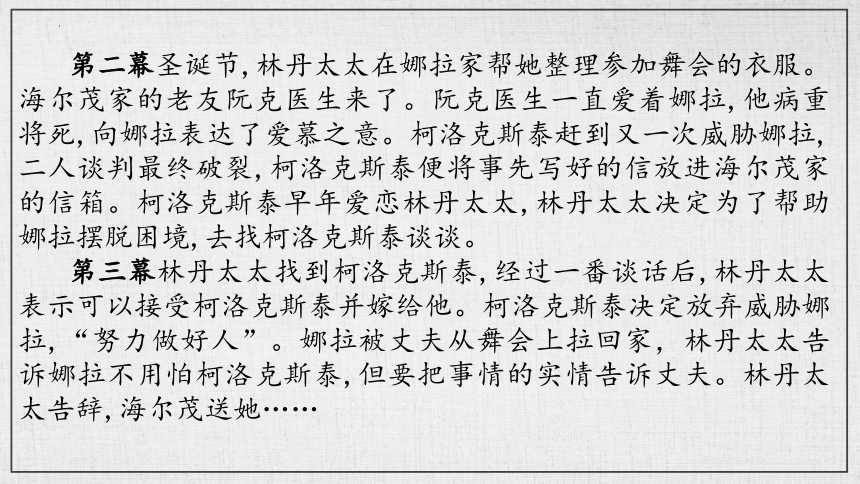 第二幕圣诞节,林丹太太在娜拉家帮她整理参加舞会的衣服。
海尔茂家的老友阮克医生来了。阮克医生一直爱着娜拉,他病重
将死,向娜拉表达了爱慕之意。柯洛克斯泰赶到又一次威胁娜拉,
二人谈判最终破裂,柯洛克斯泰便将事先写好的信放进海尔茂家
的信箱。柯洛克斯泰早年爱恋林丹太太,林丹太太决定为了帮助
娜拉摆脱困境,去找柯洛克斯泰谈谈。
第三幕林丹太太找到柯洛克斯泰,经过一番谈话后,林丹太太
表示可以接受柯洛克斯泰并嫁给他。柯洛克斯泰决定放弃威胁娜
拉,“努力做好人”。娜拉被丈夫从舞会上拉回家，林丹太太告
诉娜拉不用怕柯洛克斯泰,但要把事情的实情告诉丈夫。林丹太
太告辞,海尔茂送她……